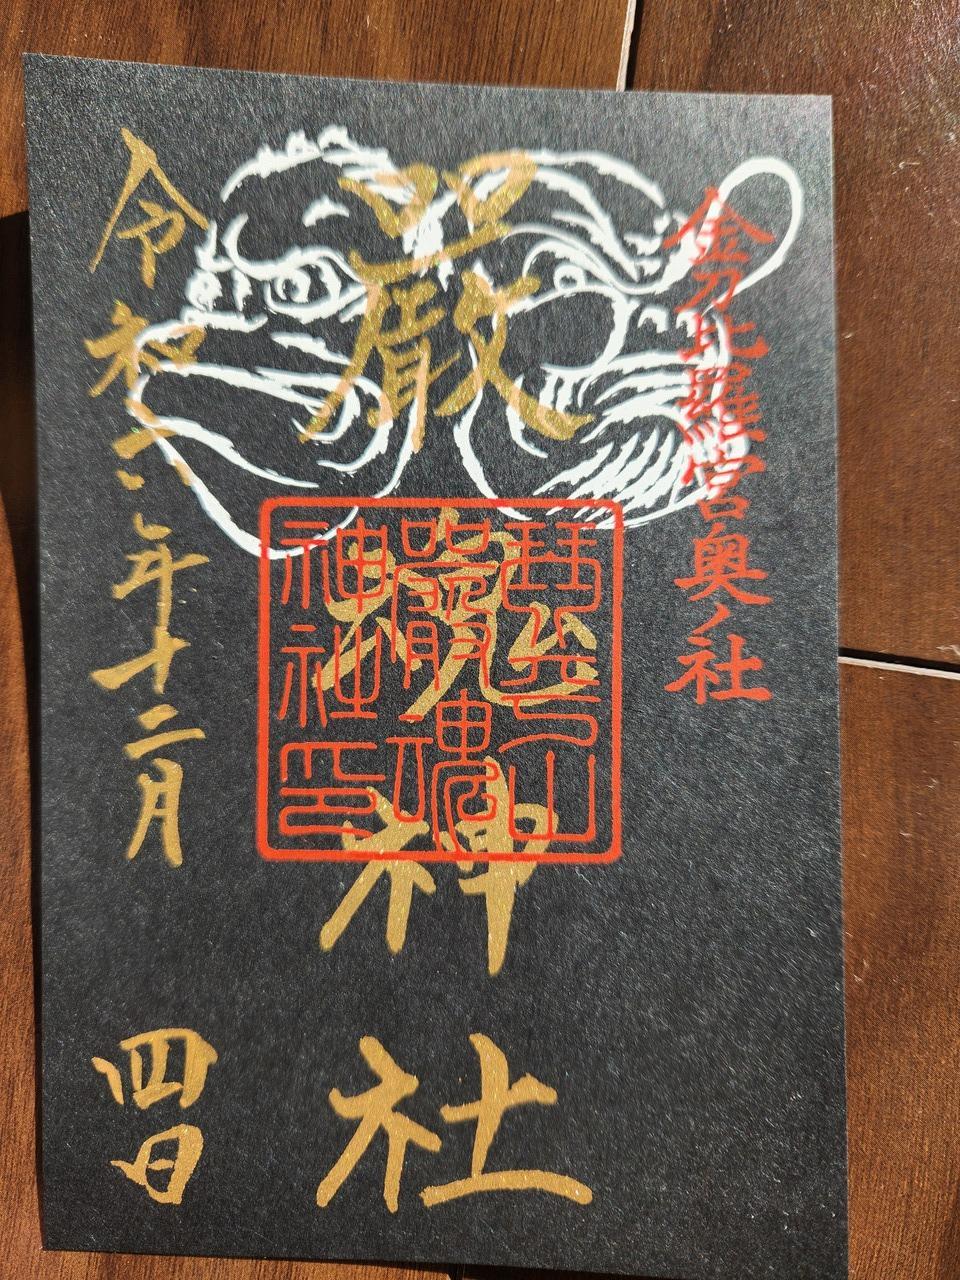 金刀比羅宮奥ノ社
嚴魂神社
琴平山
嚴魂
神社印
令和六年十二月四日